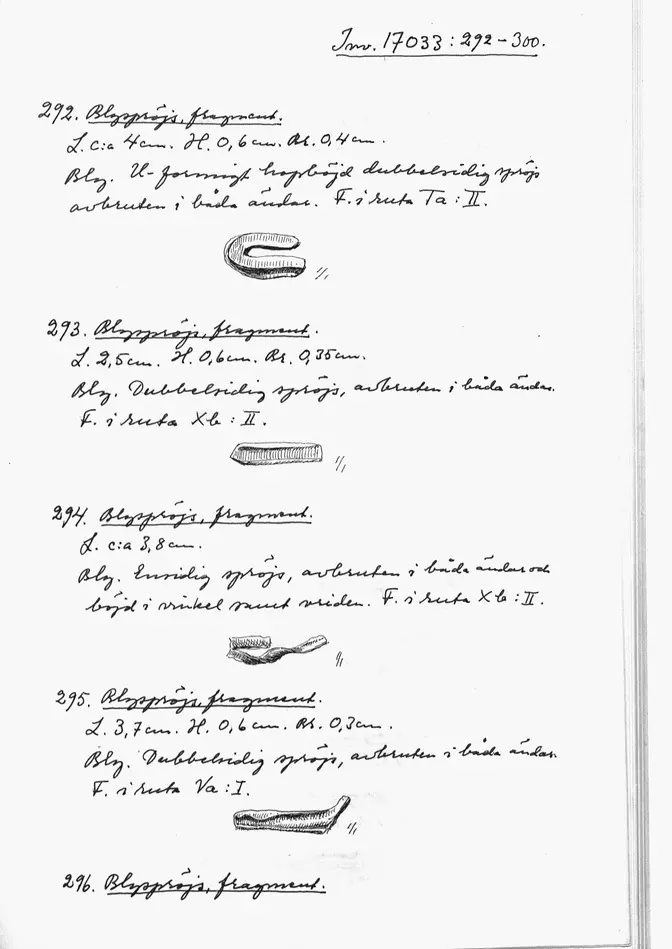 Inv. 17033:292-300.
292. Blyspröjs, fragment.
L. c:a 4 cm. H. 0,6 cm. Br. 0,4 cm.
Bly. U-formigt hopböjd dubbelsidig spröjs
avbruten i båda ändar. F. i ruta Ta:II.
1/1
293. Blyspröjs, fragment.
L. 2,5 cm. H. 0,6 cm. Br. 0,35 cm.
Bly. Dubbelsidig spröjs, avbruten i båda ändar.
F. i ruta Xb:II.
1/1
294. Blyspröjs, fragment.
L. c:a 3,8 cm.
Bly. Ensidig spröjs, avbruten i båda ändar och
böjd i vinkel samt vriden. F. i ruta Xb:II.
1/1
295. Blyspröjs, fragment.
L. 3,7 cm. H. 0,6 cm. Br. 0,3 cm.
Bly. Dubbelsidig spröjs, avbruten i båda ändar.
F. i ruta Va:I.
1/1
296. Blyspröjs, fragment.